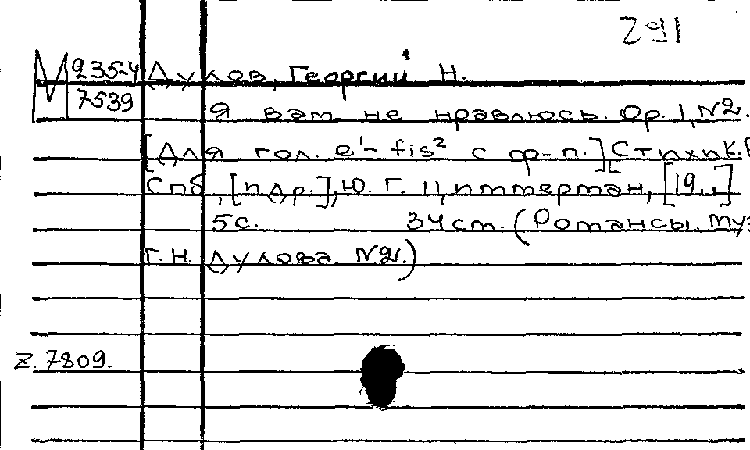 291
М 235-4 Дулов, Георгий Н.
7539 Я вам не нравлюсь. Op. 1, №2.
[Для гол. e¹-fis² с ф-п.] Стихи К.
Спб, [пдр.], Ю. Г. Циммерман, [19..]
5с. 34 см. (Романсы. Муз
Г. Н. Дулова. №2.)
Z. 7809.